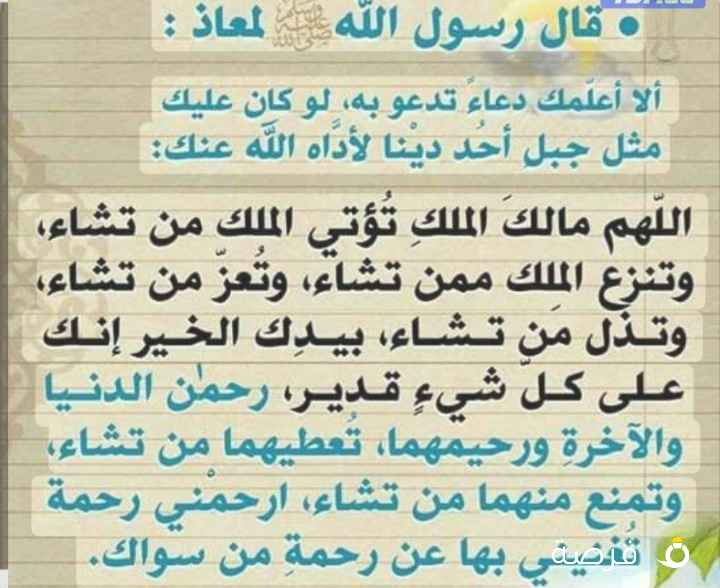 • قال رسول الله ﷺ لمعاذ :
ألا أعلّمك دعاءً تدعو به، لو كان عليك
مثل جبلِ أحُد ديْنا لأدَّاه اللَّه عنك:
اللّهم مالكَ الملكِ تُؤتي الملك من تشاء،
وتنزع الملك ممن تشاء، وتُعزّ من تشاء،
وتـذل مَن تـشـاء، بيـدِك الخـير إنـك
عـلى كـلّ شيءٍ قـديـر، رحمٰن الدنـيا
والآخرةِ ورحيمهما، تُعطيهما من تشاء،
وتمنع منهما من تشاء، ارحمْني رحمة
تُغنيني بها عن رحمةِ من سواك.
فرصة